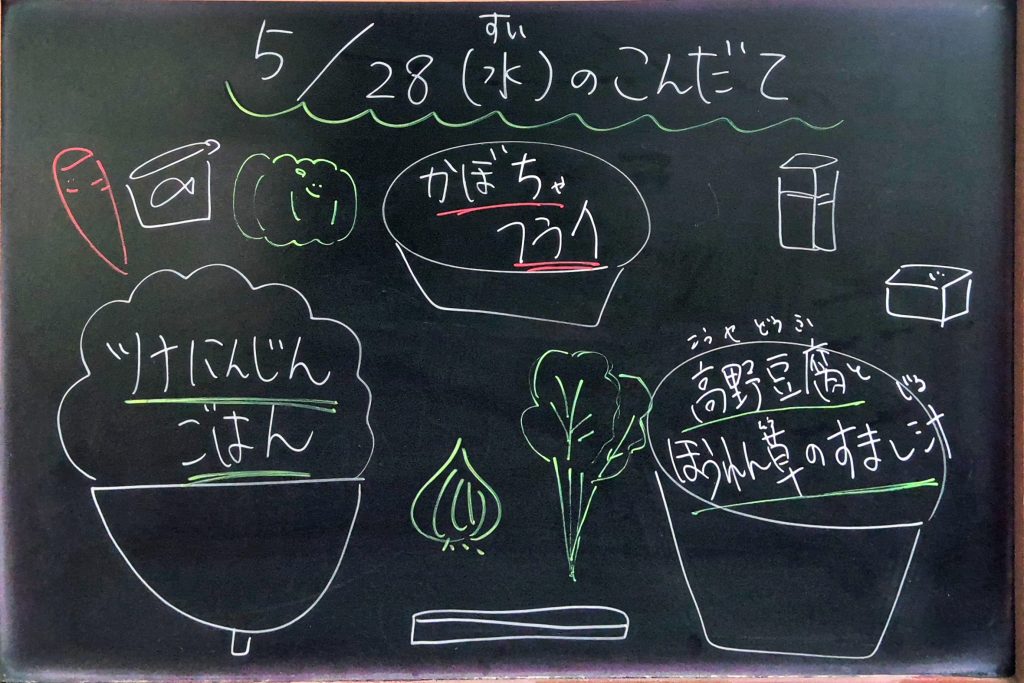 すい
5/28(水)のこんだて
かぼちゃ
フライ
ツナにんじん
ごはん
こうやどうふ
高野豆腐と
じる
ほうれん草のすまし汁